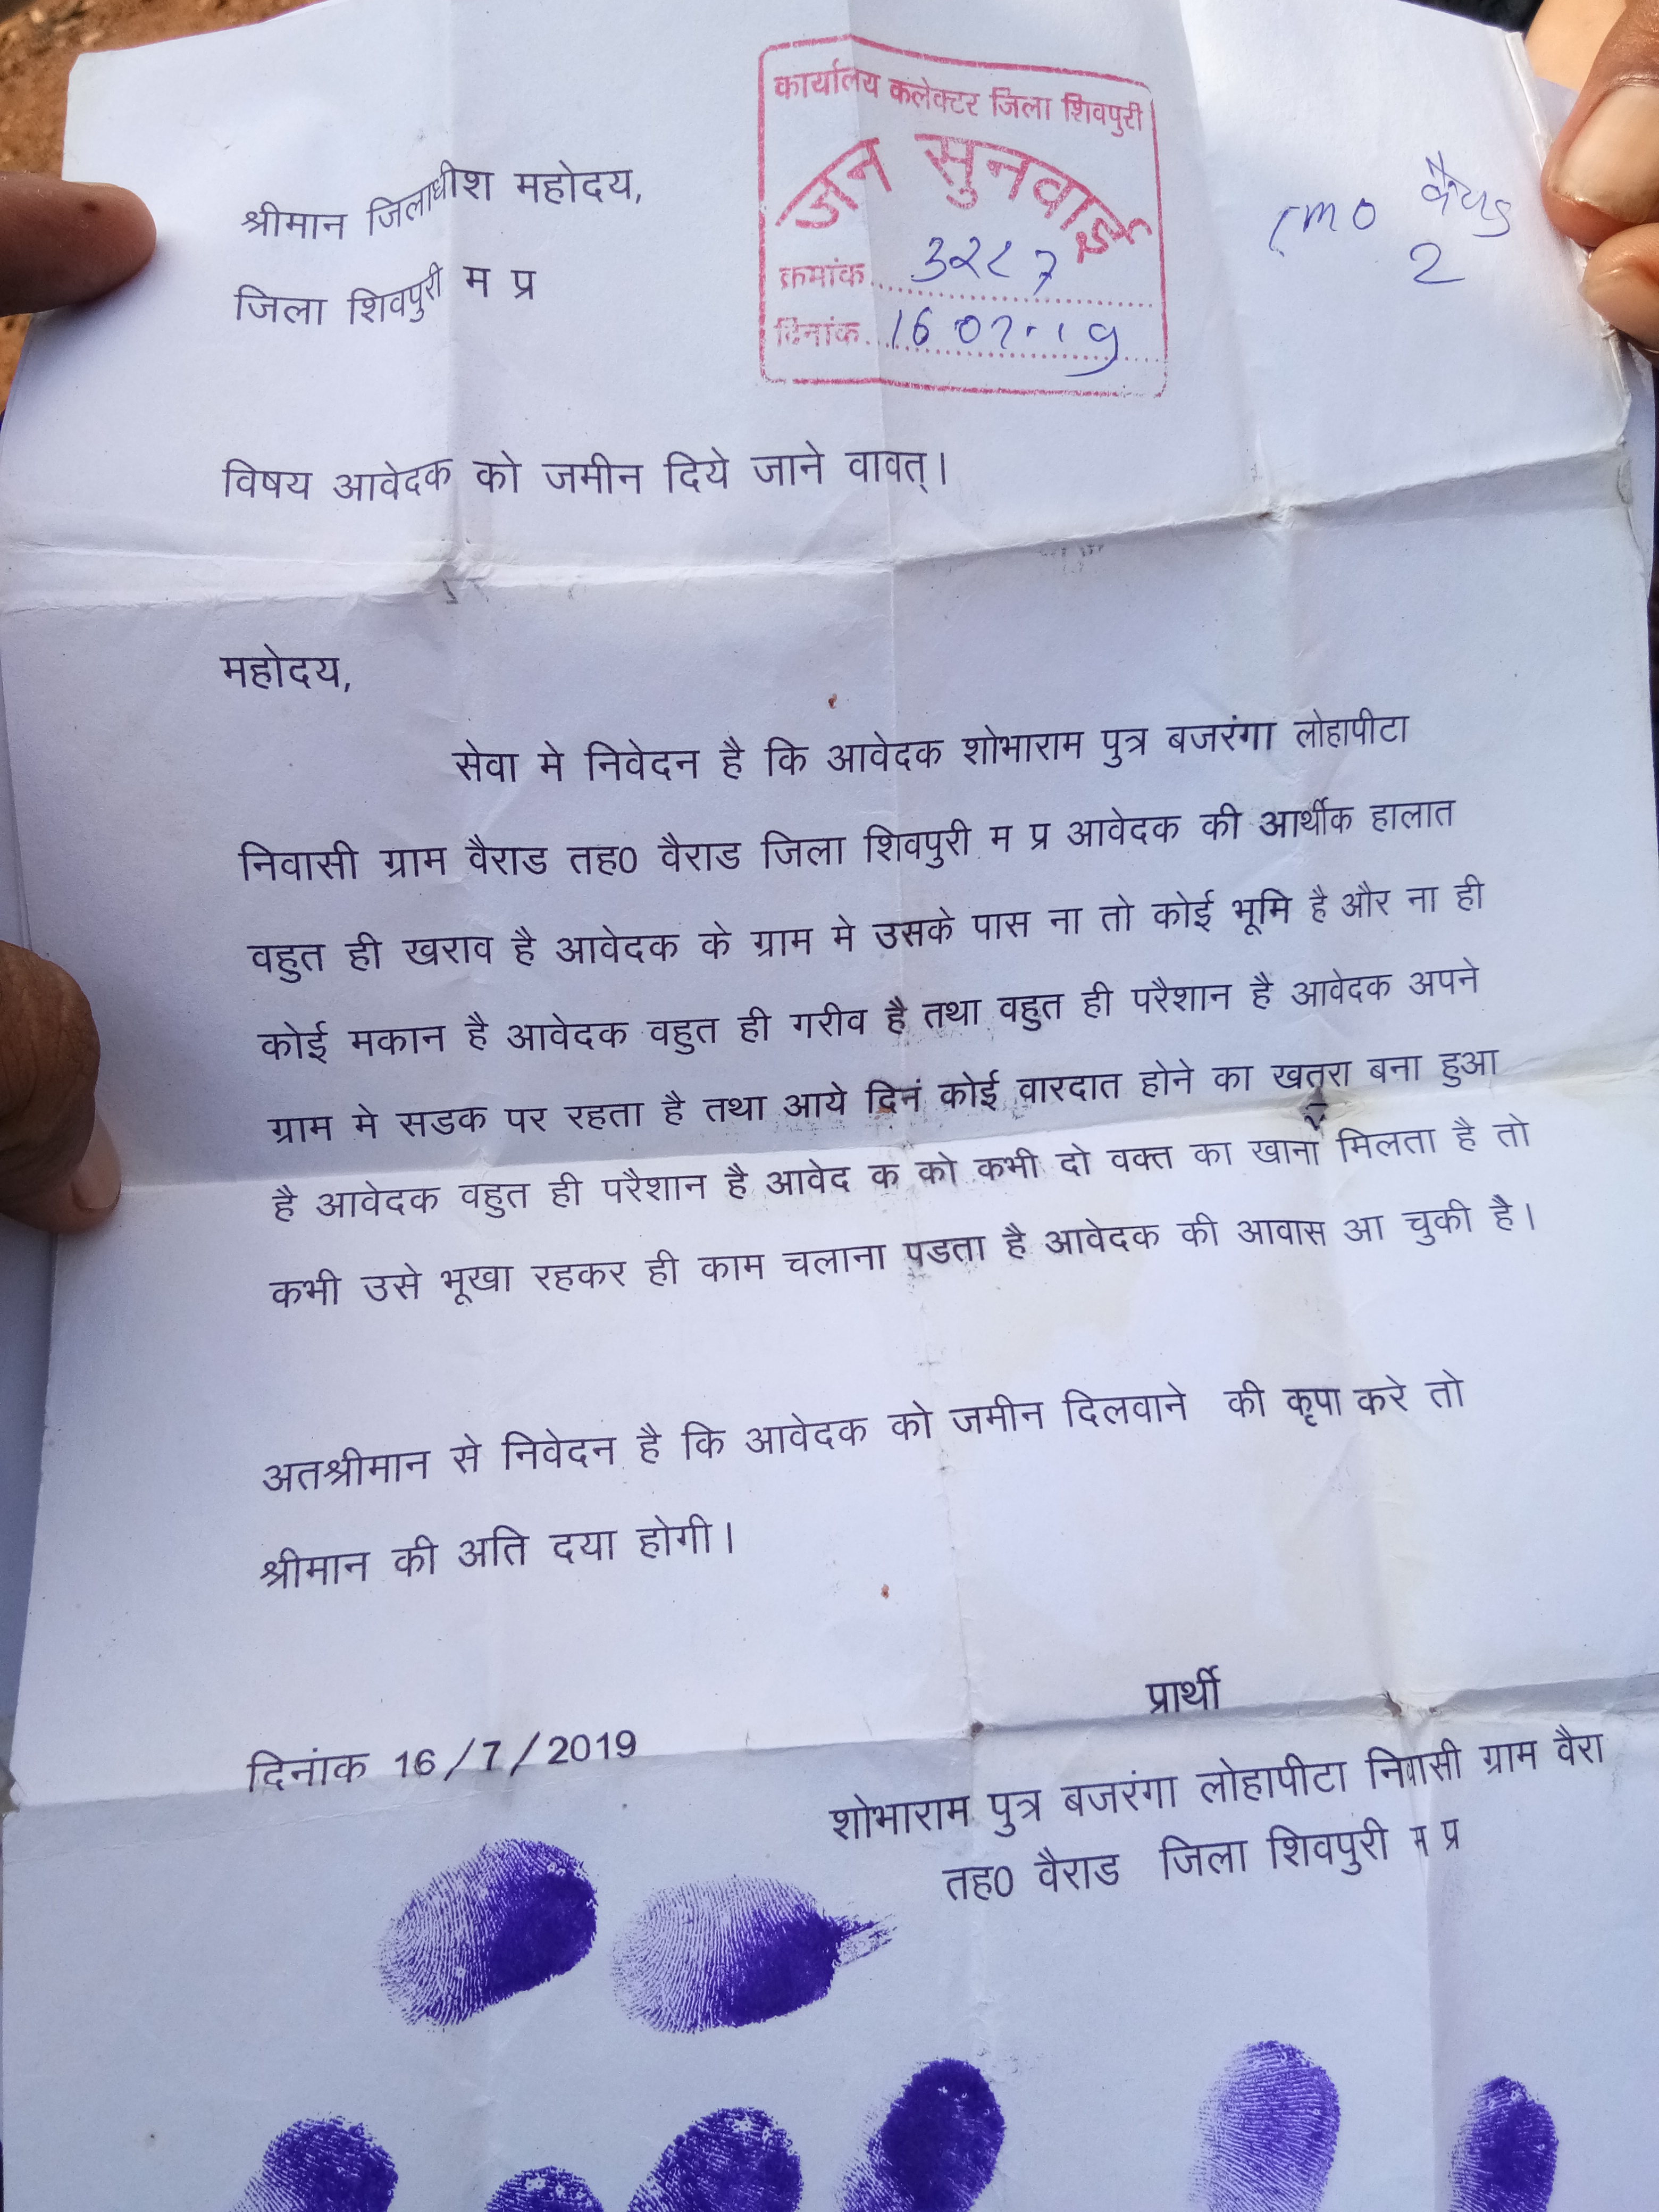 कार्यालय कलेक्टर जिला शिवपुरी
जन सुनवाई
क्रमांक
दिनांक 16 07 19
CMO
2
श्रीमान जिलाधीश महोदय,
जिला शिवपुरी म प्र
विषय आवेदक को जमीन दिये जाने वावत्।
महोदय,
सेवा मे निवेदन है कि आवेदक शोभाराम पुत्र बजरंगा लोहापीटा
निवासी ग्राम वैराड तह0 वैराड जिला शिवपुरी म प्र आवेदक की आर्थीक हालात
वहुत ही खराव है आवेदक के ग्राम मे उसके पास ना तो कोई भूमि है और ना ही
कोई मकान है आवेदक वहुत ही गरीव है तथा वहुत ही परैशान है आवेदक अपने
ग्राम मे सडक पर रहता है तथा आये दिनं कोई वारदात होने का खतरा बना हुआ
है आवेदक वहुत ही परैशान है आवेद क को कभी दो वक्त का खाना मिलता है तो
कभी उसे भूखा रहकर ही काम चलाना पडता है आवेदक की आवास आ चुकी है।
अतश्रीमान से निवेदन है कि आवेदक को जमीन दिलवाने की कृपा करे तो
श्रीमान की अति दया होगी।
प्रार्थी
दिनांक 16/7/2019
शोभाराम पुत्र बजरंगा लोहापीटा निवासी ग्राम वैरा
तह0 वैराड जिला शिवपुरी म प्र